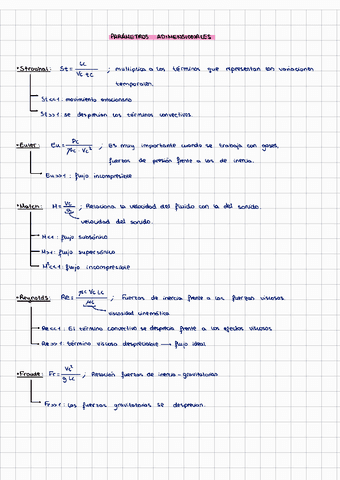 PARÁMETROS ADIMENSIONALES
• Strouhal: St = Lc / Vc tc ; multiplica a los términos que representan las variaciones
temporales.
St<<1: movimiento estacionario
St>>1: se desprecian los términos convectivos.
• Euler: Eu = Pc / ρc Vc² ; Es muy importante cuando se trabaja con gases,
fuerzas de presión frente a las de inercia.
Eu>>1: flujo incompresible
• Match: M = Vc / ; Relaciona la velocidad del fluido con la del sonido.
velocidad del sonido.
M<1: flujo subsónico
M>1: flujo supersónico
M²<<1: flujo incompresible
• Reynolds: Re = ρc Vc Lc / μc ; Fuerzas de inercia frente a las fuerzas viscosas.
viscosidad cinemática
Re<<1: El término convectivo se desprecia frente a los efectos viscosos
Re>>1: término viscoso despreciable → flujo ideal
• Froude: Fr = Vc² / g Lc ; Relación fuerzas de inercia-gravitatorias
Fr>>1: Las fuerzas gravitatorias se desprecian.